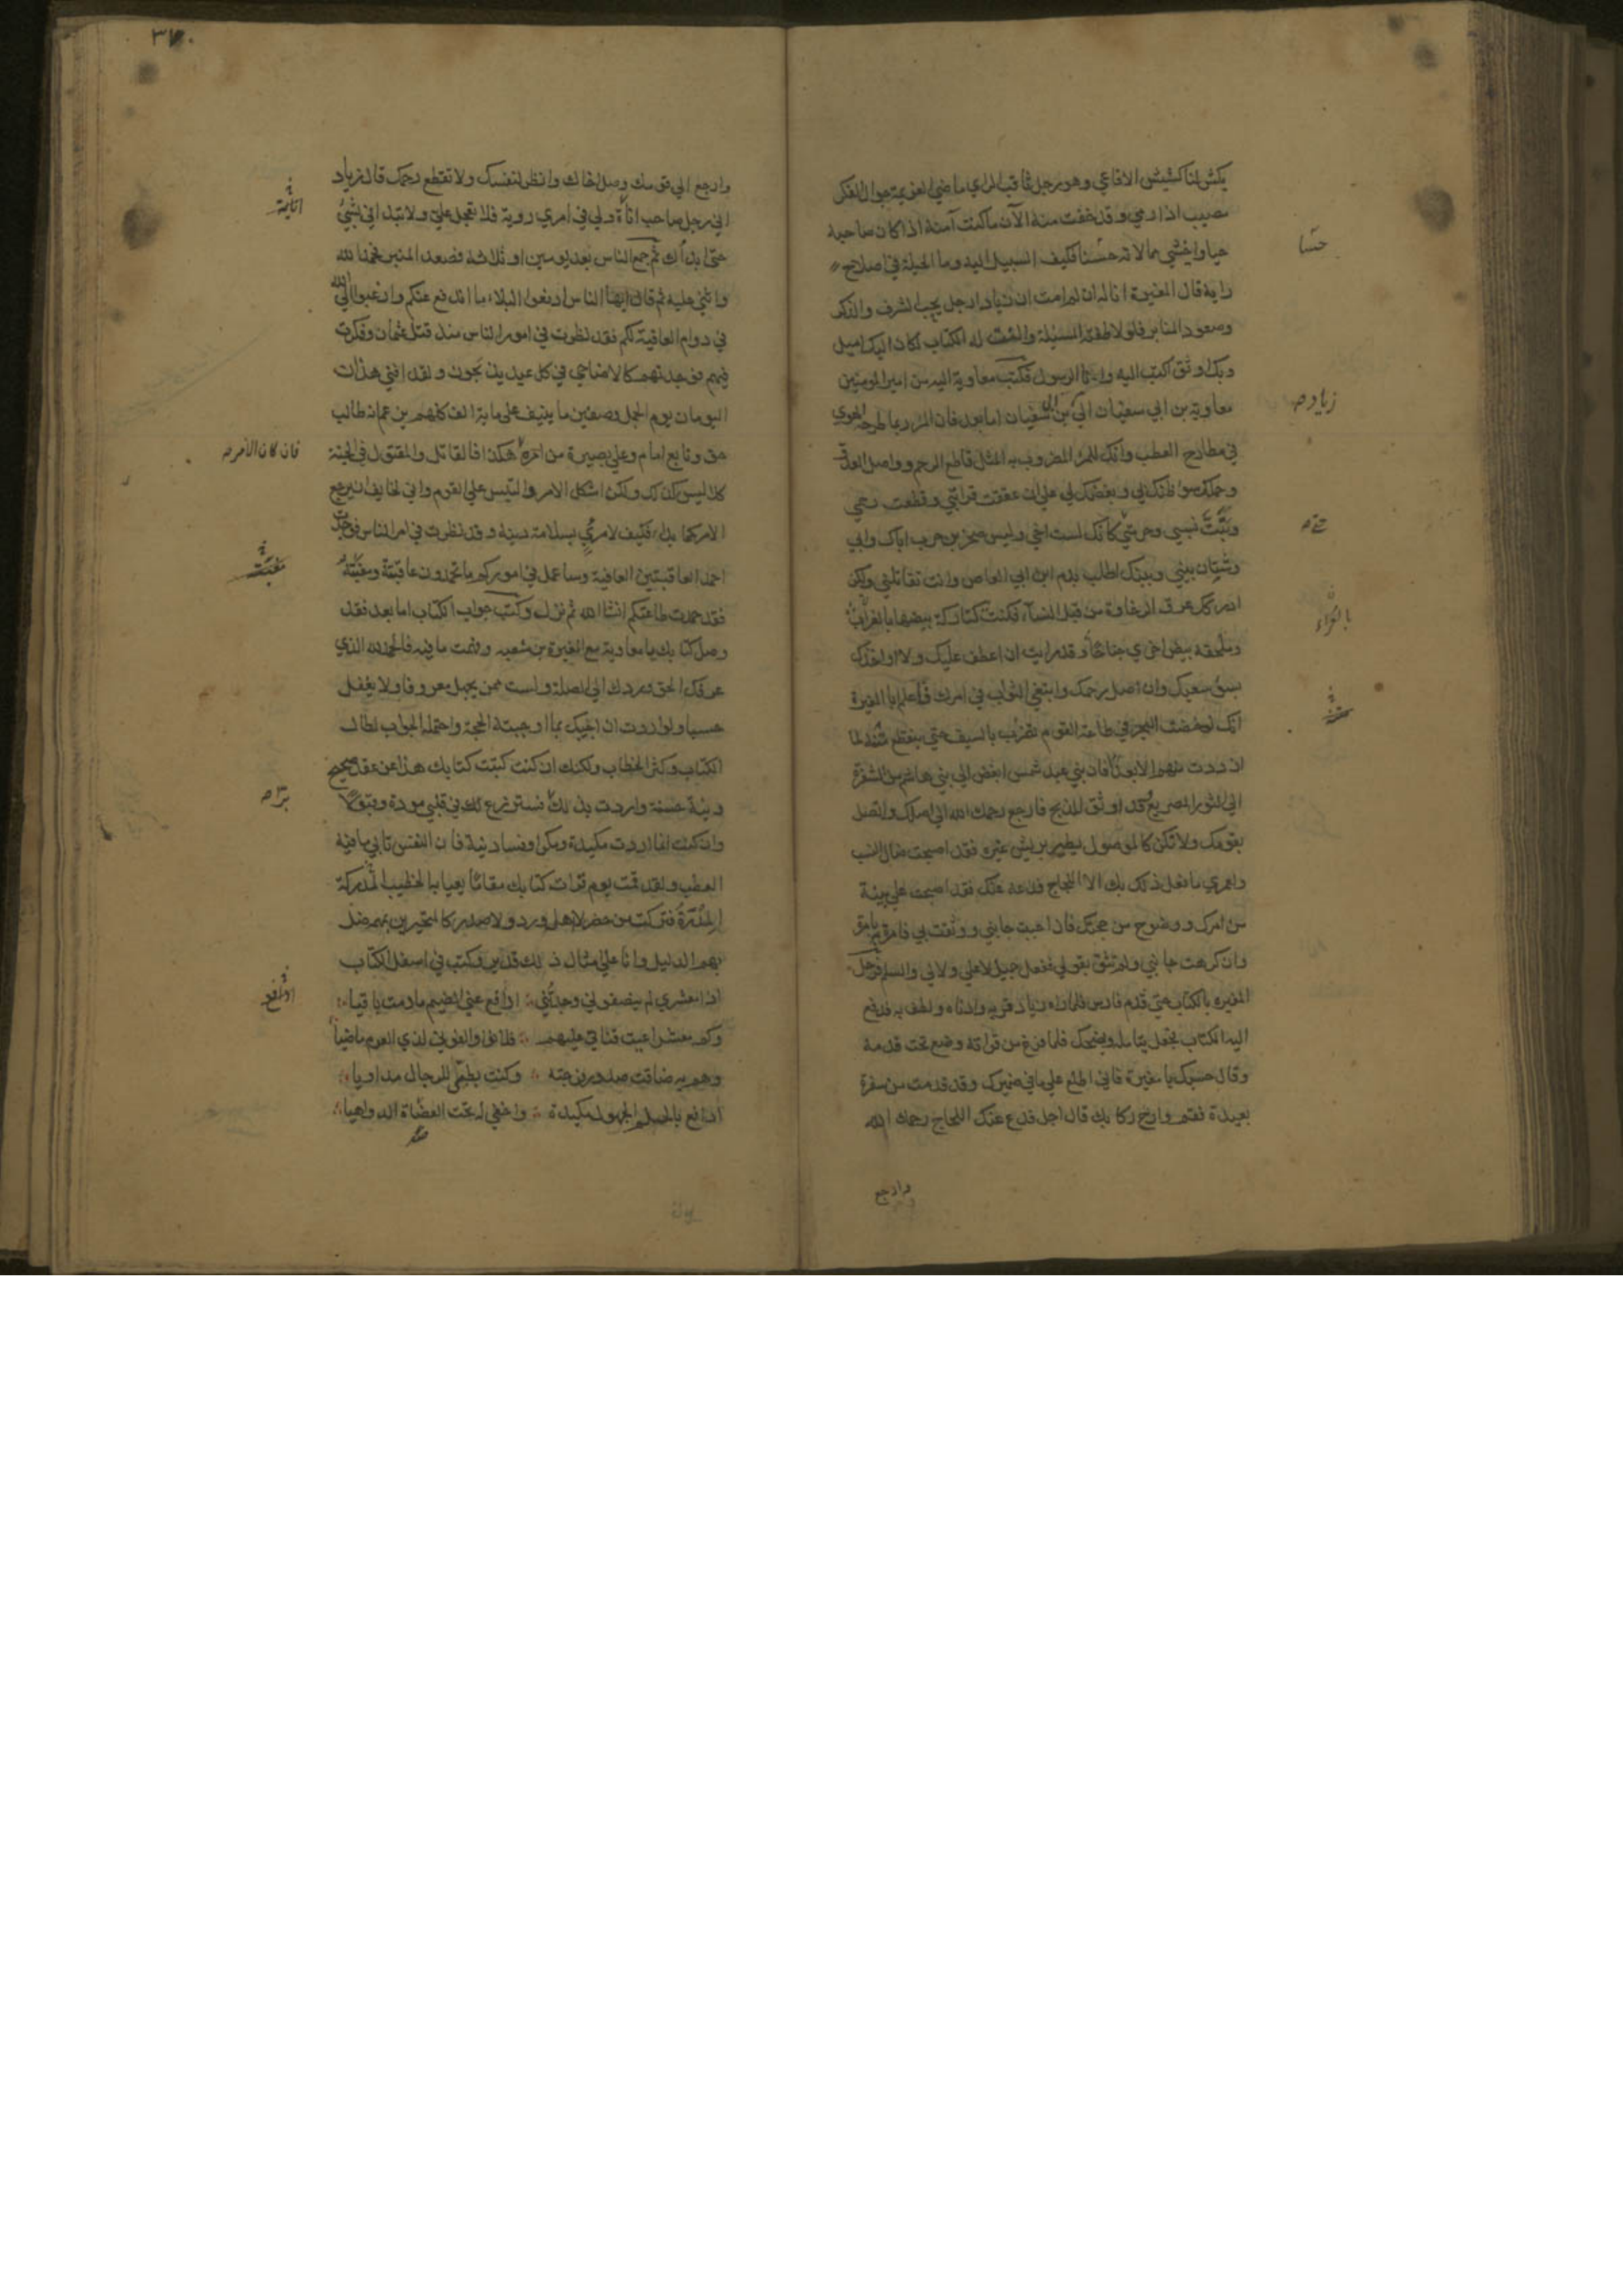 يكش لنا كشيش الافاعي وهو رجل ثاقب الراي ماضي العزيمة جوال الفكر
مصيب اذا رمي وقد خفت منه الآن ما كنت آمنه اذا كان صاحبه
حيا واخشي ممالاته حسنا فكيف السبيل اليه وما الحيلة في اصلاح
رايه قال المغيرة انا له ان لم امت ان زيادا رجل يحب الشرف والذكر
وصعود المنابر فلو لاطفته المسئلة والنت له الكتاب لكان اليك اميل
وبك اوثق اكتب اليه وانا الرسول فكتب معاوية اليه من امير المومنين
معاوية بن ابي سفيان الي بن ابي سفيان اما بعد فان المرء ربما طرحه الهوي
في مطارح العطب وانك للمرء المضروب به المثل قاطع الرحم وواصل العدو
وحملك سوء ظنك بي وبغضك لي علي ان عققت قرابتي وقطعت رحمي
وبتت نسبي وحرمتي كانك لست اخي وليس صخر بن حرب اباك وابي
وشتان بيني وبينك اطلب بدم ابن ابي العاص وانت تقاتلني ولكن
ادركك عرق الرخاوة من قبل النساء فكنت كتاركة بيضها بالعراء
وملحفة بيض اخري جناحا وقد رايت ان اعطف عليك ولا اواخذك
بسوء سعيك وان اصل رحمك وابتغي الثواب في امرك فاعلم ابا المغيرة
انك لو خضت البحر في طاعة القوم تضرب بالسيف حتي ينقطع متنه لما
ازددت منهم الا بعدا فان بني عبد شمس ابغض الي بني هاشم من الشفرة
الي الثور الصريع وقد اوثق للذبح فارجع رحمك الله الي اصلك واتصل
بقومك ولا تكن كالموصول يطير بريش غيره فقد اصبحت ضال النسب
ولعمري ما فعل ذلك بك الا اللجاج فدعه عنك فقد اصبحت علي بينة
من امرك ووضوح من حجتك فان احببت جانبي ووثقت بي فامرة بامرة
وان كرهت جانبي ولم تثق بقولي ففعل جميل لا علي ولا لي والسلم فرحل
المغيره بالكتاب حتي قدم فارس فلما راه زياد قربه وادناه ولطف به فدفع
اليه الكتاب فجعل يتامله ويضحك فلما فرغ من قراته وضع تحت قدمه
وقال حسبك يا مغيرة فاني اطلع علي ما في ضميرك وقد قدمت من سفرة
بعيدة فقم وارح ركابك قال اجل فدع عنك اللجاج رحمك الله
وارجع
حسنا
زياد صه
بالعراء
٣٧٠
وارجع الي قومك وصل اخاك وانظر لنفسك ولا تقطع رحمك قال زياد
اني رجل صاحب اناة ولي في امري روية فلا تعجل علي ولا تبدأني بشيء
حتي ابدأك ثم جمع الناس بعد يومين او ثلاثة فصعد المنبر فحمد الله
واثني عليه ثم قال ايها الناس ادفعوا البلاء ما اندفع عنكم وارغبوا الي الله
في دوام العافية لكم فقد نظرت في امور الناس منذ قتل عثمان وفكرت
فيهم فوجدتهم كالاضاحي في كل عيد يذبحون ولقد افني هذان
اليومان يوم الجمل وصفين ما ينيف علي مائة الف كلهم يزعم انه طالب
حق وتابع امام وعلي بصيرة من امره هكذا فالقاتل والمقتول في الجنة
كلا ليس كذلك ولكن اشكل الامر والتبس علي القوم واني لخايف ان يرجع
الامر كما بدا فكيف لامرئ بسلامة دينه وقد نظرت في امر الناس فوجدت
احد العاقبتين العافية وساعمل في اموركم ما تحمدون عاقبته ومغبته
فقد حمدت طاعتكم انشاء الله ثم نزل وكتب جواب الكتاب اما بعد فقد
وصل كتابك يا معاوية مع المغيرة بن شعبه وفهمت ما فيه فالحمد لله الذي
عرفك الحق وردك الي الصلة ولست ممن يجهل معروفا ولا يغفل
حسبا ولو اردت ان اجيبك بما اوجبته الحجة واحتمله الجواب لطال
الكتاب وكثر الخطاب ولكنك ان كنت كتبت كتابك هذا عن عقد صحيح
ونية حسنة واردت بذلك برا فستزرع لك في قلبي مودة وقبولا
وان كنت انما اردت مكيدة ومكرا وفساد نية فان النفس تابي ما فيه
العطب ولقد قمت يوم قرات كتابك مقاما يعيا به الخطيب المدره
فتركت من حضر لا اهل ورد ولا صدر كالمتحيرين بمهمه ضل
بهم الدليل وانا علي امثال ذلك قدير وكتب في اسفل الكتاب
اذا معشري لم ينصفوني وجدتني ∴ ادافع عني الضيم مادمت باقيا ∴
وكم معشر اعيت قناتي عليهم ∴ فلاموا والفوني لدي العزم ماضيا
وهم به ضاقت صدور فرجته ∴ وكنت بطبي للرجال مداويا ∴
ادافع بالحلم الجهول مكيدة ∴ واخفي له تحت العضاة الدواهيا ∴
فان كان الامر صه
مغبته
برا صه
ادافع